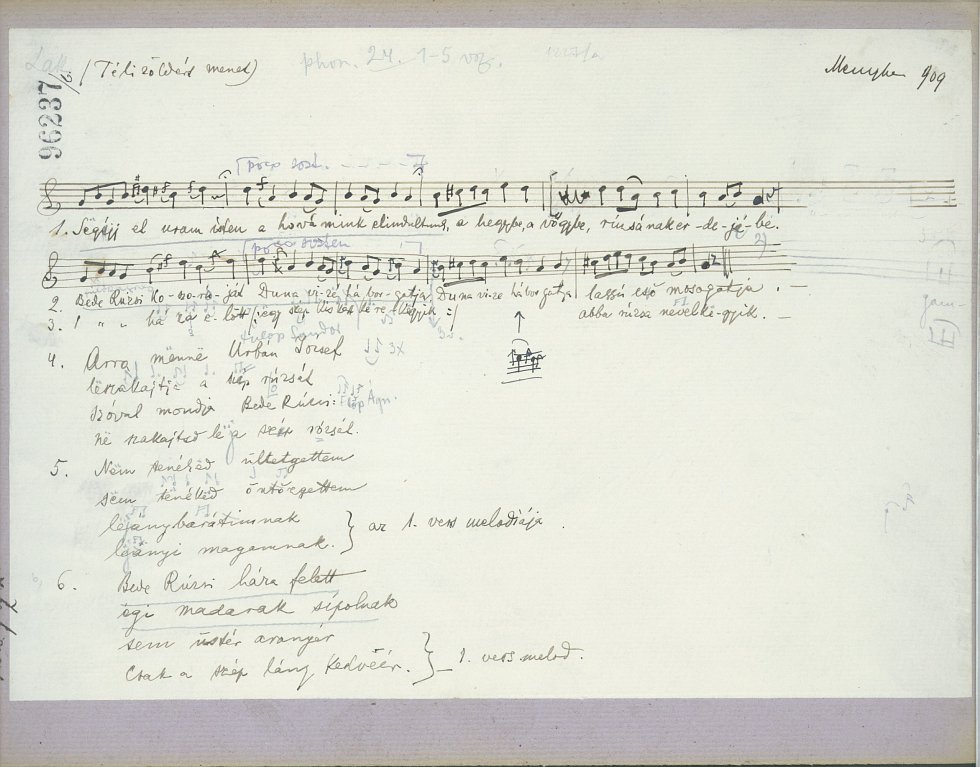 (Téli zöldért menet)
phon. 24. 1-5 voz.
Menyhe 909
96237
poco sost.
1. Ségéjj el uram isten a hová mink elindultunk, a hegybe, a vőgybe, rúzsának er-de-jé-be.
poco sosten
2. Bede Rúzsi ko-szo-rú-ját Duna vi-ze há bor-gatja, Duna vi-ze hábor gatja lassú eső mosogatja.
3. " " " há za e-lőtt, egy szép kis kert ke re-kegyik :| abba rúzsa nevelke-gyik. —
Fülöp Sándor
4. Arra mënnë Urbán József
lëszakajtja a szép rúzsát
Szóval mondja Bede Rúzsi:
Fülöp Ágn.
në szakajtsd le a szép rózsát.
5. Nëm tenéked ültetgettem
sëm tenéked öntözgettem
léánybarátimnak
léányi magamnak. } az 1. vers melodiája.
6. Bede Rúzsi háza felett
égi madarak sípolnak
sem üstér aranyér
Csak a szép lány kedvéér. } — 1. vers melod.